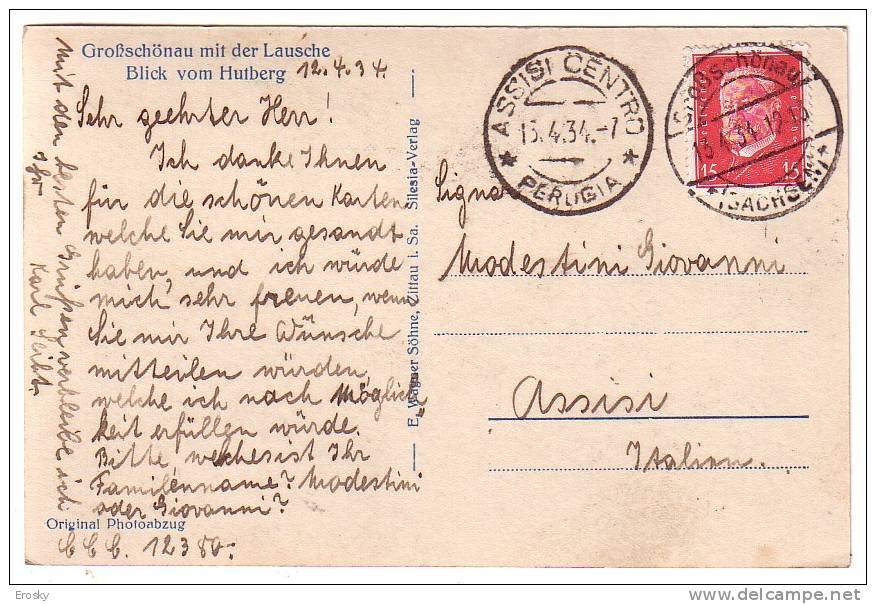 Großschönau mit der Lausche
Blick vom Hutberg 12.4.34.
Sehr geehrter Herr!
Ich danke Ihnen
für die schönen Karten
welche Sie mir gesandt
haben, und ich würde
mich sehr freuen, wenn
Sie mir Ihre Wünsche
mitteilen würden,
welche ich nach Möglich
keit erfüllen würde.
Bitte, welches ist Ihr
Familenname? Modestini
oder Giovanni?
Mit den besten Grüßen verbleibe ich
Ihr
Karl Seibt.
Original Photoabzug
C C C. 12380.
E. Wagner Söhne, Zittau i. Sa. Silesia-Verlag
ASSISI CENTRO
13.4.34.-7
* PERUGIA *
Großschönau
13.4.34.12-13
* (SACHSEN) *
15 15
Signor
Modestini Giovanni
Assisi
Italien.
Erosky
delcampe.net